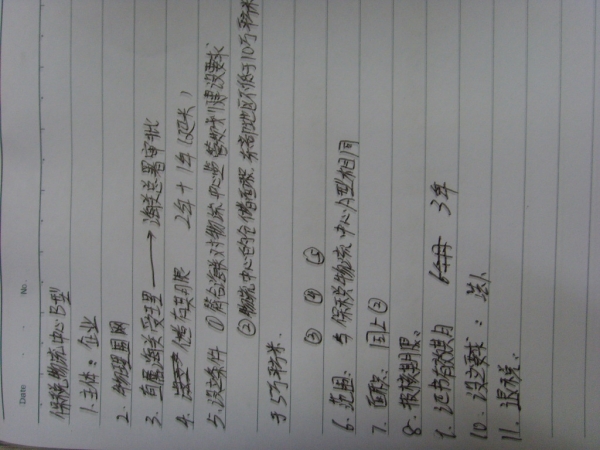 Date No.
保税物流中心B型
1.主体：企业
2.物理围网
3.直属海关受理 → 海关总署审批
4. 储存期限 2年+1年(延长)
5.设立条件 ①符合海关对物流中心监管规划建设要求
②物流中心的仓储面积，东部地区不低于10万平米，
于5万平米.
③ ④ ⑤
6.范围：与保税物流中心A型相同
7.面积：同上②
8.报核期限：
9.证书有效期 3年
10.设立要求：法人
11.退税.